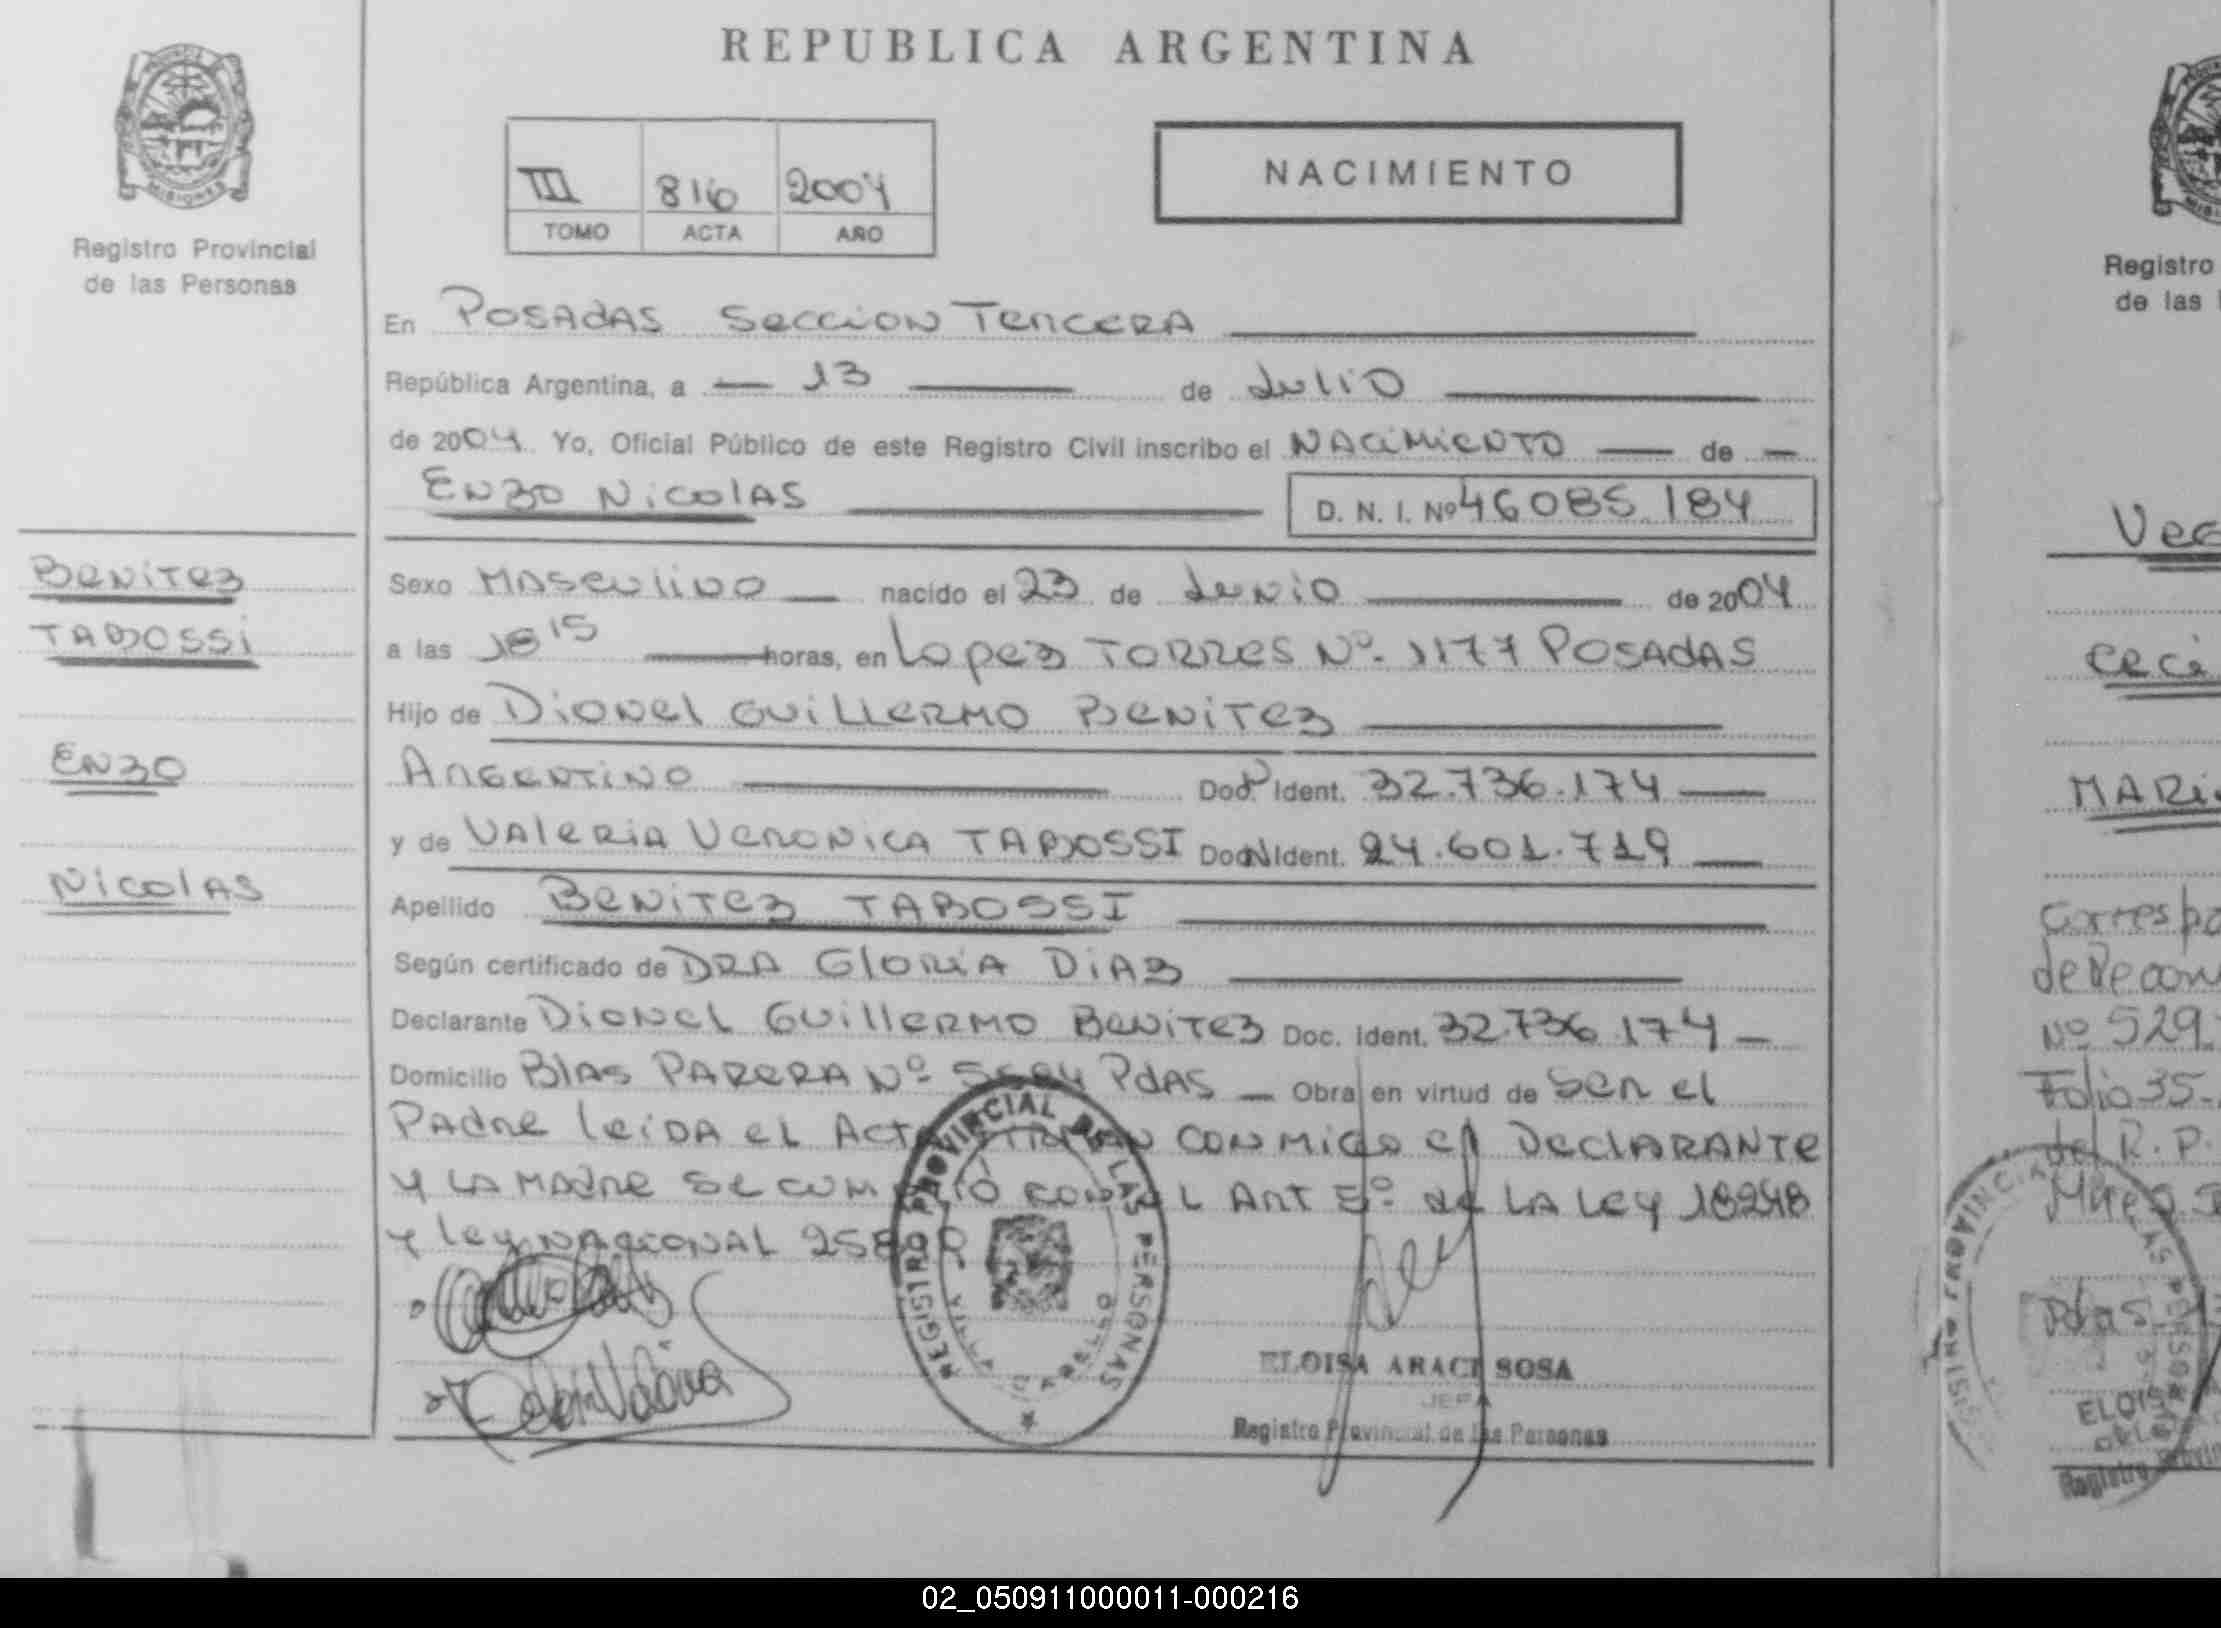 REPUBLICA ARGENTINA
PROVINCIA DE MISIONES
Registro Provincial
de las Personas
III 816 2004
TOMO ACTA AÑO
NACIMIENTO
En POSADAS SECCION TERCERA
República Argentina, a 13 de JULIO
de 2004 Yo, Oficial Público de este Registro Civil inscribo el NACIMIENTO de
ENZO NICOLAS D. N. I. Nº 46085.184
Sexo MASCULINO nacido el 23 de JUNIO de 2004
a las 18 15 horas, en LOPEZ TORRES Nº 1177 POSADAS
Hijo de DIONEL GUILLERMO BENITEZ
ARGENTINO Doc. Ident. 32.736.174
y de VALERIA VERONICA TABOSSI Doc. Ident. 24.601.719
Apellido BENITEZ TABOSSI
Según certificado de DRA GLORIA DIAZ
Declarante DIONEL GUILLERMO BENITEZ Doc. Ident. 32.736.174
Domicilio BLAS PARERA Nº PDAS Obra en virtud de SER EL
PADRE LEIDA EL ACTA FIRMAN CONMIGO EL DECLARANTE
Y LA MADRE SE CUMPLIÓ CON EL ART 5º DE LA LEY 18248
Y LEY NACIONAL
BENITEZ
TABOSSI
ENZO
NICOLAS
REGISTRO PROVINCIAL DE LAS PERSONAS
ELOISA ARACI SOSA
JEFA
Registro Provincial de las Personas
Registro
de las
CECI
MARI
Corresp
Nº 529
Folio 35
del R. P.
Pdas
ELOI
Registro
02_050911000011-000216